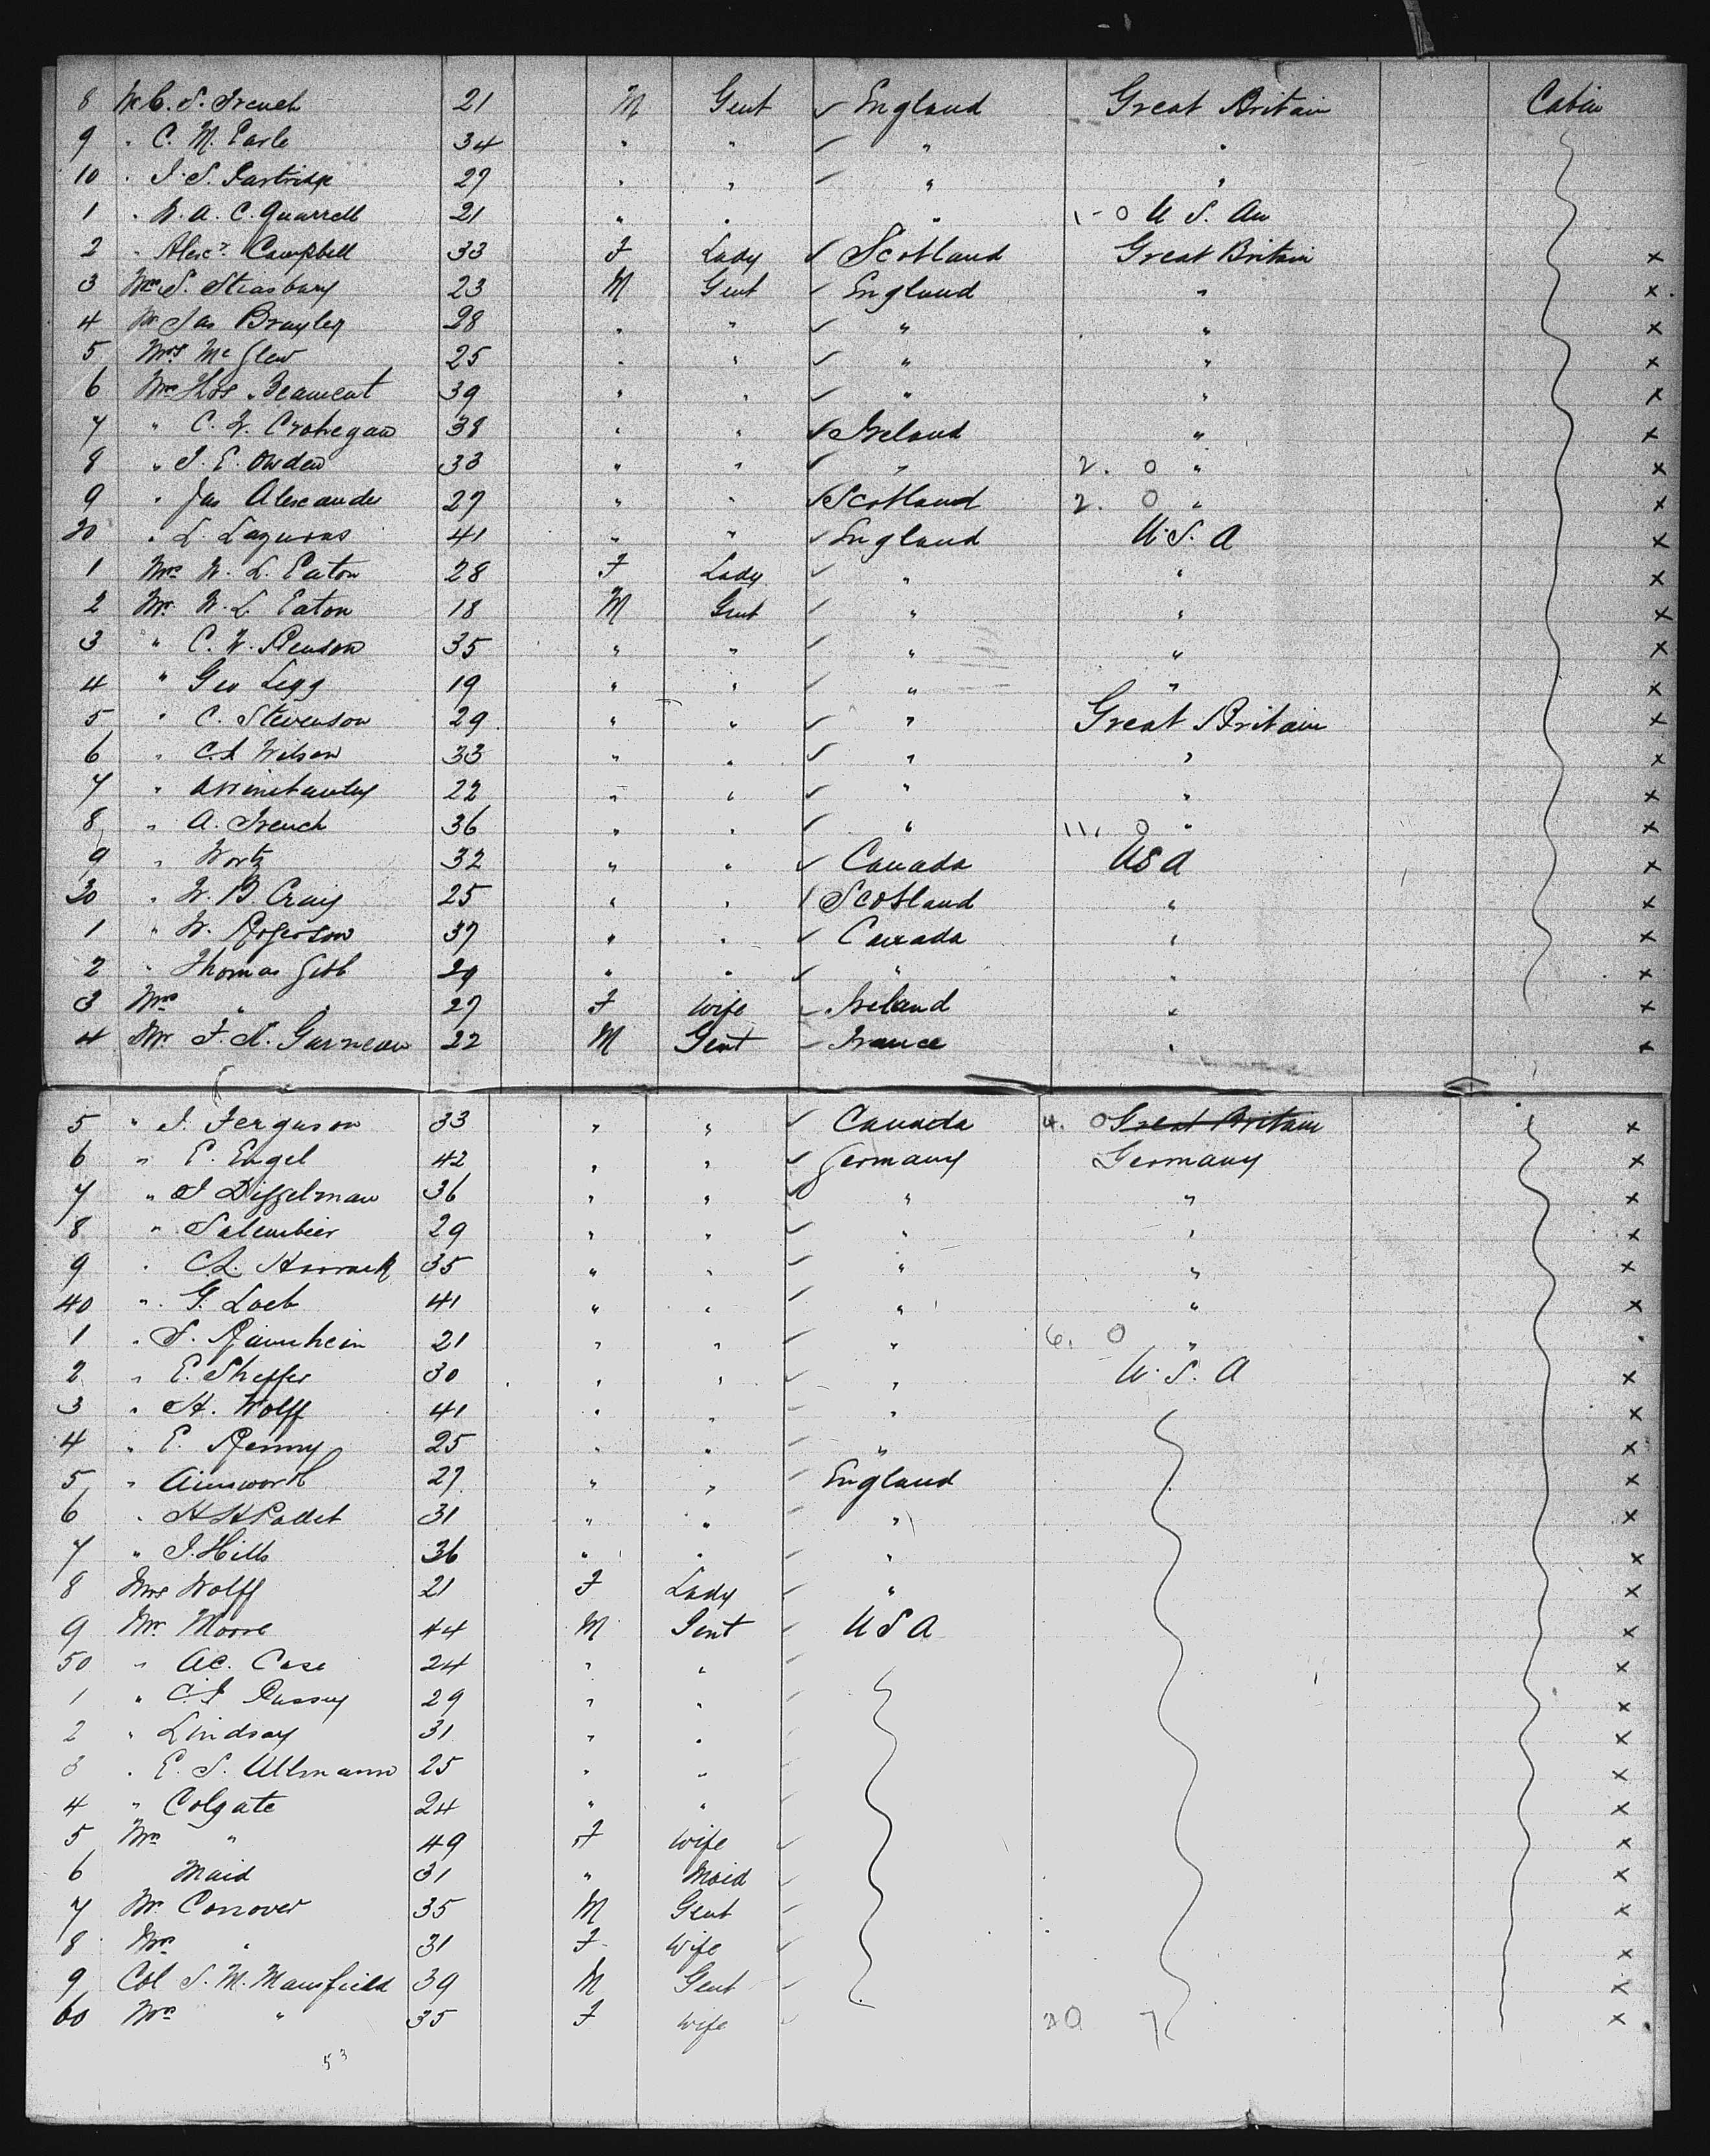 8 Mr C. S. French 21 M Gent ✓ England Great Britain Cabin
9 " C. M. Earle 34 " " ✓ " "
10 " J. S. Partridge 27 " " ✓ " "
1 " W. A. C. Quarrell 21 " " " 1 - 0 U S. Am
2 " Alexr Campbell 33 F Lady ✓ Scotland Great Britain x
3 Mr S. 23 M Gent ✓ England " x
4 Mr Jas Brayley 28 " " ✓ " " x
5 Mrs Mc Glew 25 " " ✓ " " x
6 Mr Hos. Beaument 39 " " ✓ " " x
7 " C. W. 38 " " ✓ Ireland " x
8 " J. E. Owden 33 " " ✓ " 2. 0 " x
9 " Jas Alexander 27 " " ✓ Scotland 2. 0 " x
20 " L. Lazurus 41 " " ✓ England U. S. A x
1 Mrs W. L. Eaton 28 F Lady ✓ " " x
2 Mr. W. L. Eaton 18 M Gent ✓ " " x
3 " C. W. 35 " " ✓ " " x
4 " Geo Legg 19 " " ✓ " " x
5 " C. Stevenson 29 " " ✓ " Great Britain x
6 " Wilson 33 " " ✓ " " x
7 " 22 " " ✓ " " x
8 " A. French 36 " " ✓ " 11. 0 " x
9 " Wortz 32 " " ✓ Canada U S A x
30 " W. B. Craig 25 " " Scotland " x
1 " W. 37 " " ✓ Canada " x
2 " Thomas Gibb 29 " " ✓ " " x
3 Mrs " 27 F Wife Ireland " x
4 Mr F. X. Garneau 22 M Gent France " x
5 " J. Ferguson 33 " " ✓ Canada 4. 0 Great Britain x
6 " E. Engel 42 " " ✓ Germany Germany x
7 " J Disselman 36 " " ✓ " " x
8 " Salembier 29 " " ✓ " " x
9 " C. L. 35 " " ✓ " " x
40 " G. Loeb 41 " " ✓ " " x
1 " S. 21 " " ✓ " 6. 0 "
2 " E. Sheffer 30 " " ✓ " U. S. A x
3 " H. Wolff 41 " " ✓ " x
4 " E. 25 " " ✓ " x
5 " Ainsworth 27 " " ✓ England x
6 " H H Pallet 31 " " " x
7 " J. Hills 36 " " ✓ " x
8 Mrs Wolff 21 F Lady ✓ " x
9 Mr. Moore 44 M Gent ✓ U S A x
50 " A C. Case 24 " " x
1 " 29 " " x
2 " Lindsay 31 " " x
3 " E. S. Ullmann 25 " " x
4 " Colgate 24 " " x
5 Mrs " 49 F Wife x
6 Maid 31 " Maid x
7 Mr. Conover 35 M Gent x
8 Mrs " 31 F Wife x
9 Col S. M. Mansfield 39 M Gent x
60 Mrs " 35 F Wife x
53